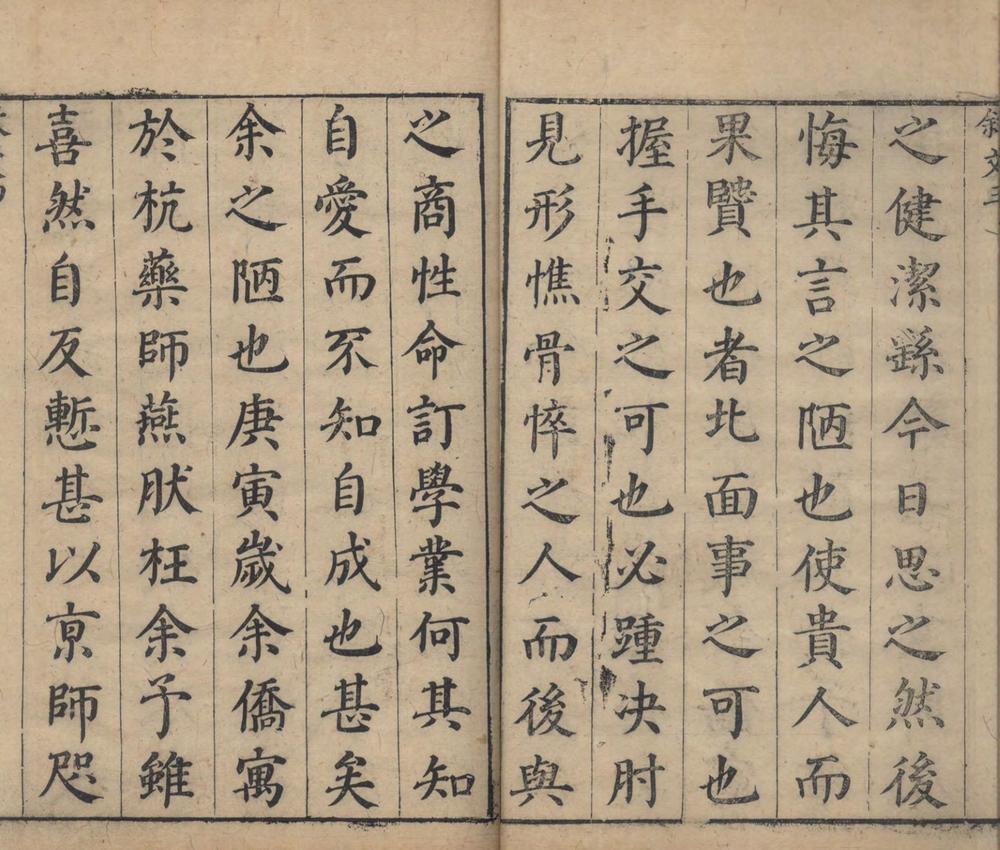 之健潔繇今日思之然後
悔其言之陋也使貴人而
果賢也者北面事之可也
握手交之可也必踵决肘
見形憔骨悴之人而後與
之商性命訂學業何其知
自愛而不知自成也甚矣
余之陋也庚寅歲余僑寓
於杭藥師燕肰枉余予雖
喜然自反慙甚以京師咫